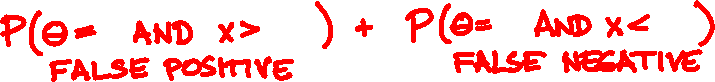 P(θ=   AND x>   ) + P(θ=   AND x<   )
FALSE POSITIVE   FALSE NEGATIVE